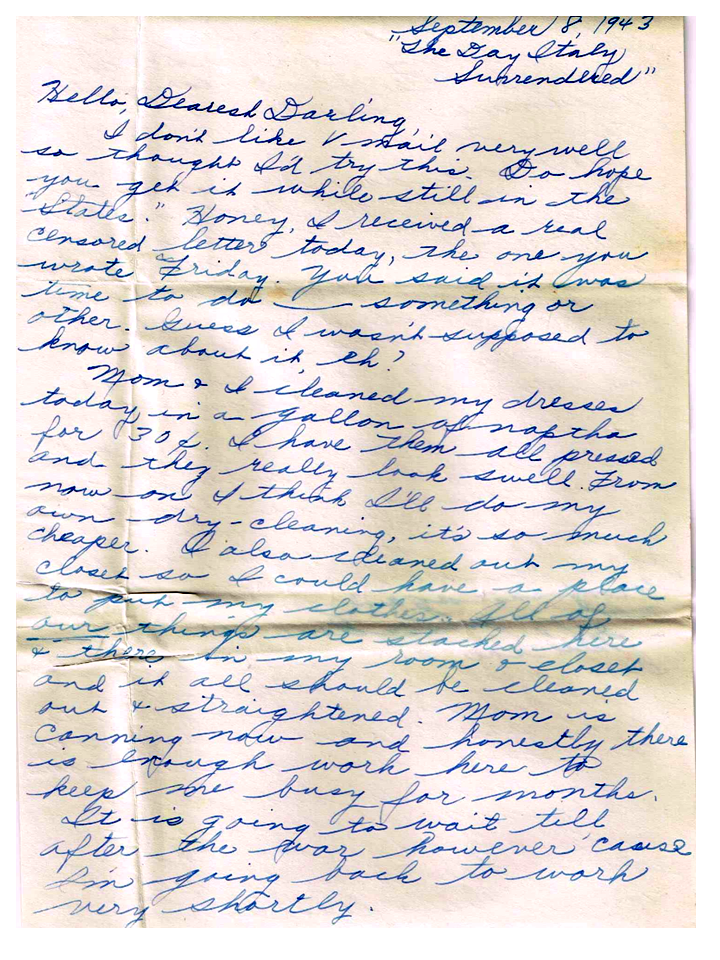 September 8, 1943
"The Day Italy
Surrendered"
Hello, Dearest Darling,
I don't like V mail very well
so thought I'd try this. Do hope
you get it while still in the
"States." Honey, I received a real
censored letter today, the one you
wrote Friday. You said it was
time to do — something or
other. Guess I wasn't supposed to
know about it, eh?
Mom & I cleaned my dresses
today in a gallon of naptha
for 30¢. I have them all pressed
and they really look swell. From
now on I think I'll do my
own dry-cleaning, it's so much
cheaper. I also cleaned out my
closet so I could have a place
to put my clothes. All of
our things are stacked here
& there in my room & closet
and it all should be cleaned
out & straightened. Mom is
canning now and honestly there
is enough work here to
keep me busy for months.
It is going to wait till
after the war however 'cause
I'm going back to work
very shortly.